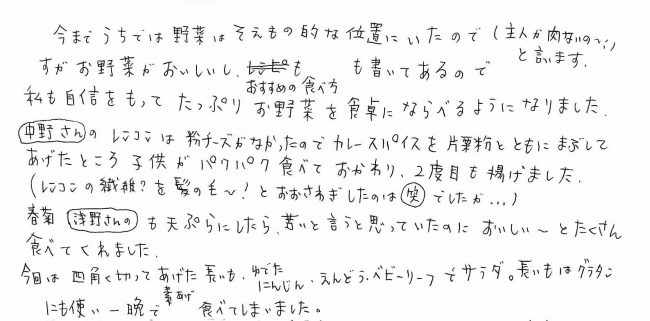 今までうちでは野菜はそえもの的な位置にいたので(主人が肉ないの〜?と言います.)
すがお野菜がおいしいし、おすすめの食べ方も書いてあるので
私も自信をもってたっぷりお野菜を食卓にならべるようになりました.
中野さんのレンコンは粉チーズがなかったのでカレースパイスを片栗粉とともにまぶして
あげたところ子供がパクパク食べておかわり、2度目も揚げました.
(レンコンの繊維?を髪の毛〜!とおおさわぎしたのは笑でしたが...)
春菊浅野さんのも天ぷらにしたら、苦いと言うと思っていたのにおいしい〜とたくさん
食べてくれました.
今回は四角く切ってあげた長いも、ゆでたにんじん、えんどう、ベビーリーフでサラダ。長いもはグラタン
にも使い一晩で素あげ食べてしまいました。